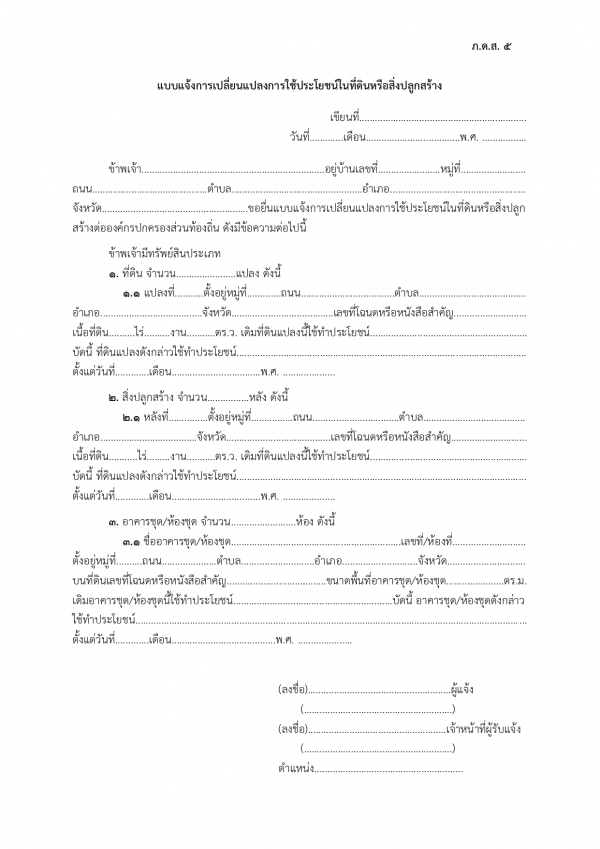 ภ.ด.ส. ๕
แบบแจ้งการเปลี่ยนแปลงการใช้ประโยชน์ในที่ดินหรือสิ่งปลูกสร้าง
เขียนที่................................................................
วันที่.............เดือน....................................พ.ศ. .................
ข้าพเจ้า......................................................................อยู่บ้านเลขที่........................หมู่ที่.........................
ถนน............................................ตำบล..................................................อำเภอ....................................................
จังหวัด........................................................ขอยื่นแบบแจ้งการเปลี่ยนแปลงการใช้ประโยชน์ในที่ดินหรือสิ่งปลูก
สร้างต่อองค์กรปกครองส่วนท้องถิ่น ดังมีข้อความต่อไปนี้
ข้าพเจ้ามีทรัพย์สินประเภท
๑. ที่ดิน จำนวน.......................แปลง ดังนี้
๑.๑ แปลงที่...........ตั้งอยู่หมู่ที่.............ถนน....................................ตำบล.........................................
อำเภอ.......................................จังหวัด.......................................เลขที่โฉนดหรือหนังสือสำคัญ............................
เนื้อที่ดิน..........ไร่..........งาน...........ตร.ว. เดิมที่ดินแปลงนี้ใช้ทำประโยชน์............................................................
บัดนี้ ที่ดินแปลงดังกล่าวใช้ทำประโยชน์...............................................................................................................
ตั้งแต่วันที่.............เดือน..................................พ.ศ. ....................
๒. สิ่งปลูกสร้าง จำนวน................หลัง ดังนี้
๒.๑ หลังที่...............ตั้งอยู่หมู่ที่................ถนน.................................ตำบล.......................................
อำเภอ.....................................จังหวัด........................................เลขที่โฉนดหรือหนังสือสำคัญ.............................
เนื้อที่ดิน..........ไร่.........งาน...........ตร.ว. เดิมที่ดินแปลงนี้ใช้ทำประโยชน์............................................................
บัดนี้ ที่ดินแปลงดังกล่าวใช้ทำประโยชน์...............................................................................................................
ตั้งแต่วันที่.............เดือน..................................พ.ศ. ....................
๓. อาคารชุด/ห้องชุด จำนวน.........................ห้อง ดังนี้
๓.๑ ชื่ออาคารชุด/ห้องชุด.................................................................เลขที่/ห้องที่............................
ตั้งอยู่หมู่ที่..........ถนน.....................ตำบล............................อำเภอ.............................จังหวัด..............................
บนที่ดินเลขที่โฉนดหรือหนังสือสำคัญ......................................ขนาดพื้นที่อาคารชุด/ห้องชุด......................ตร.ม.
เดิมอาคารชุด/ห้องชุดนี้ใช้ทำประโยชน์.............................................................บัดนี้ อาคารชุด/ห้องชุดดังกล่าว
ใช้ทำประโยชน์......................................................................................................................................................
ตั้งแต่วันที่.............เดือน........................................พ.ศ. .....................
(ลงชื่อ).......................................................ผู้แจ้ง
(.........................................................)
(ลงชื่อ).....................................................เจ้าหน้าที่ผู้รับแจ้ง
(.........................................................)
ตำแหน่ง.........................................................